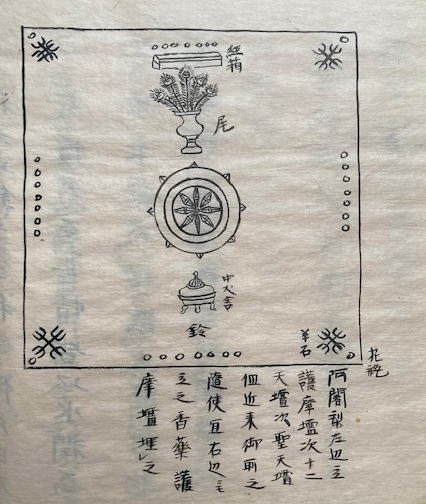 経箱
尾
中火舎
鈴
羊石
阿闍梨左辺立
護摩壇次十二
天壇次聖天壇
但近来御所之
隨便宜右辺ニモ
立之香藥護
摩壇埋レ之